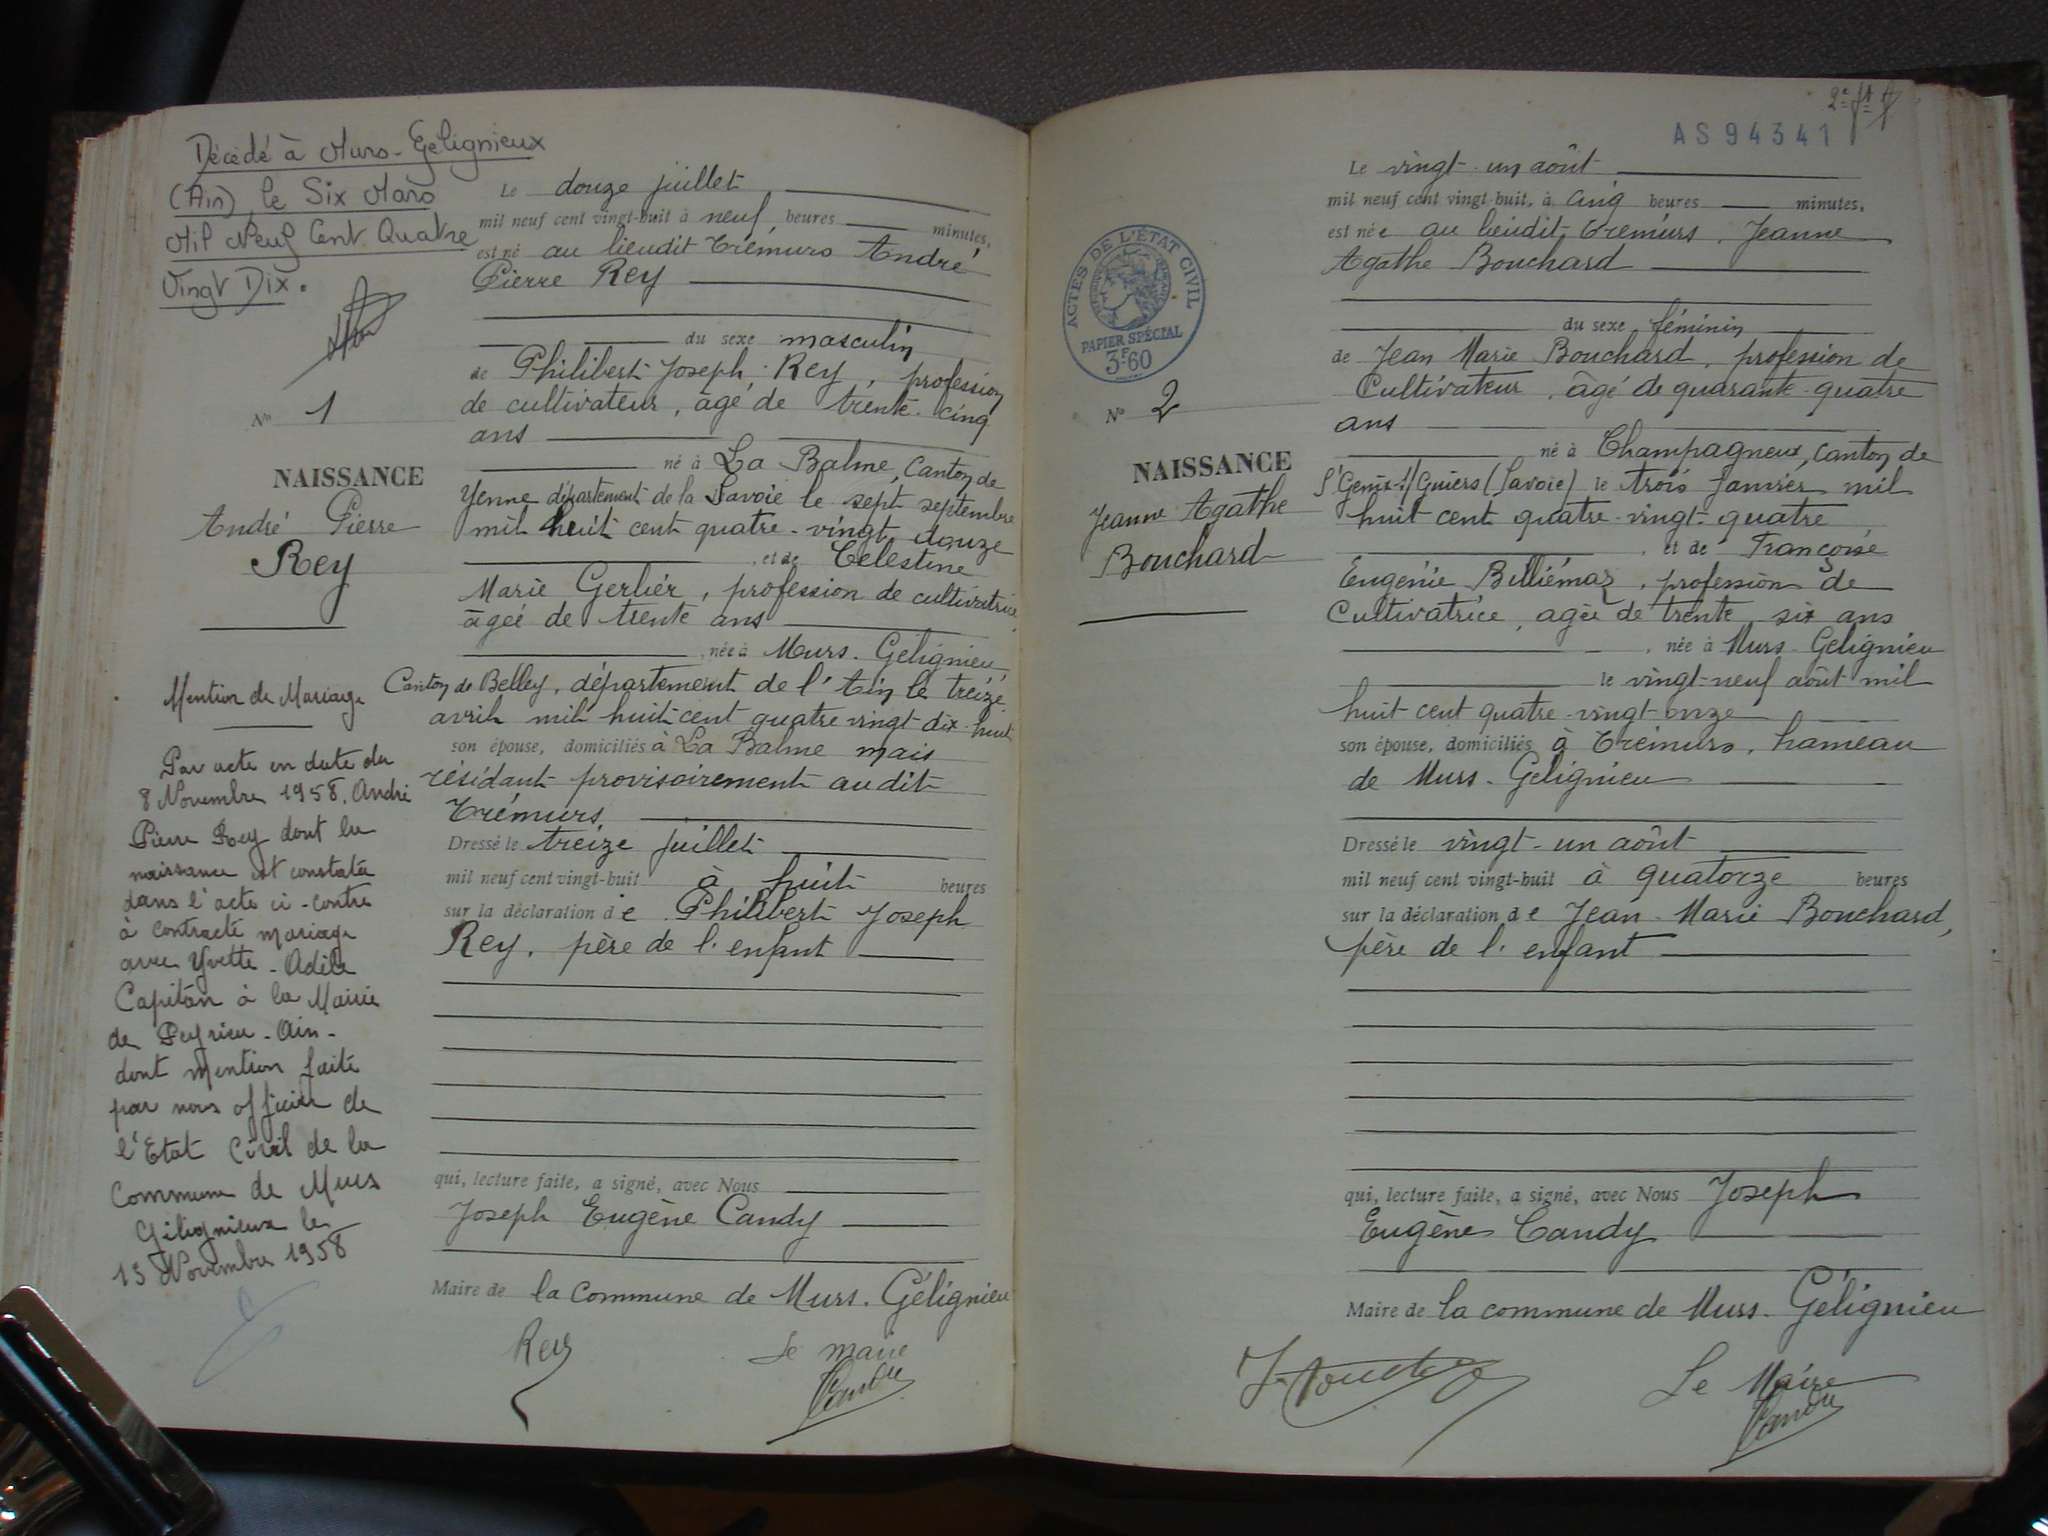 Décédé à Murs-Gélignieux
(Ain), le Six Mars
Mil Neuf Cent Quatre
Vingt Dix.
N° 1
NAISSANCE
André Pierre
Rey
Mention de Mariage
Par acte en date du
8 Novembre 1958, André
Pierre Rey dont la
naissance est constatée
dans l'acte ci-contre
à contracté mariage
avec Yvette-Adèle
Capitan à la Mairie
de Peyrieu-Ain-
dont mention faite
par nous officier de
l'Etat Civil de la
Commune de Murs
Gélignieux le
13 Novembre 1958
Le douze juillet
mil neuf cent vingt-huit à neuf heures minutes,
est né au lieudit Trémurs André
Pierre Rey
du sexe masculin
de Philibert Joseph Rey, profession
de cultivateur, âgé de trente-cinq
ans
né à La Balme, Canton de
Yenne département de la Savoie le sept septembre
mil huit cent quatre-vingt douze
, et de Célestine
Marie Gerlier, profession de cultivatrice,
âgée de trente ans
, née à Murs-Gélignieu
Canton de Belley, département de l'Ain le treize
avril mil huit cent quatre vingt-dix-huit
son épouse, domiciliés à La Balme mais
résidant provisoirement au dit
Trémurs.
Dressé le treize juillet
mil neuf cent vingt-huit à huit heures
sur la déclaration de Philibert Joseph
Rey, père de l'enfant
qui, lecture faite, a signé, avec Nous
Joseph Eugène Candy
Maire de la commune de Murs-Gélignieu
Rey Le maire
Candy
AS94341
ACTES DE L'ÉTAT CIVIL
PAPIER SPÉCIAL
3F60
N° 2
NAISSANCE
Jeanne Agathe
Bouchard
Le vingt-un août
mil neuf cent vingt-huit, à cinq heures minutes,
est née au lieudit Trémurs, Jeanne
Agathe Bouchard
du sexe féminin
de Jean Marie Bouchard, profession de
Cultivateur, âgé de quarante-quatre
ans
né à Champagneux, canton de
St Genix s/Guiers (Savoie) le trois janvier mil
huit cent quatre-vingt-quatre
, et de Françoise
Eugénie Billiémaz, profession de
Cultivatrice, agée de trente six ans
, née à Murs-Gélignieu
le vingt-neuf août mil
huit cent quatre-vingt-onze
son épouse, domiciliés à Trémurs, hameau
de Murs-Gélignieu
Dressé le vingt-un août
mil neuf cent vingt-huit à quatorze heures
sur la déclaration de Jean-Marie Bouchard,
père de l'enfant
qui, lecture faite, a signé, avec Nous Joseph
Eugène Candy
Maire de la commune de Murs-Gélignieu
Le Maire
Candy